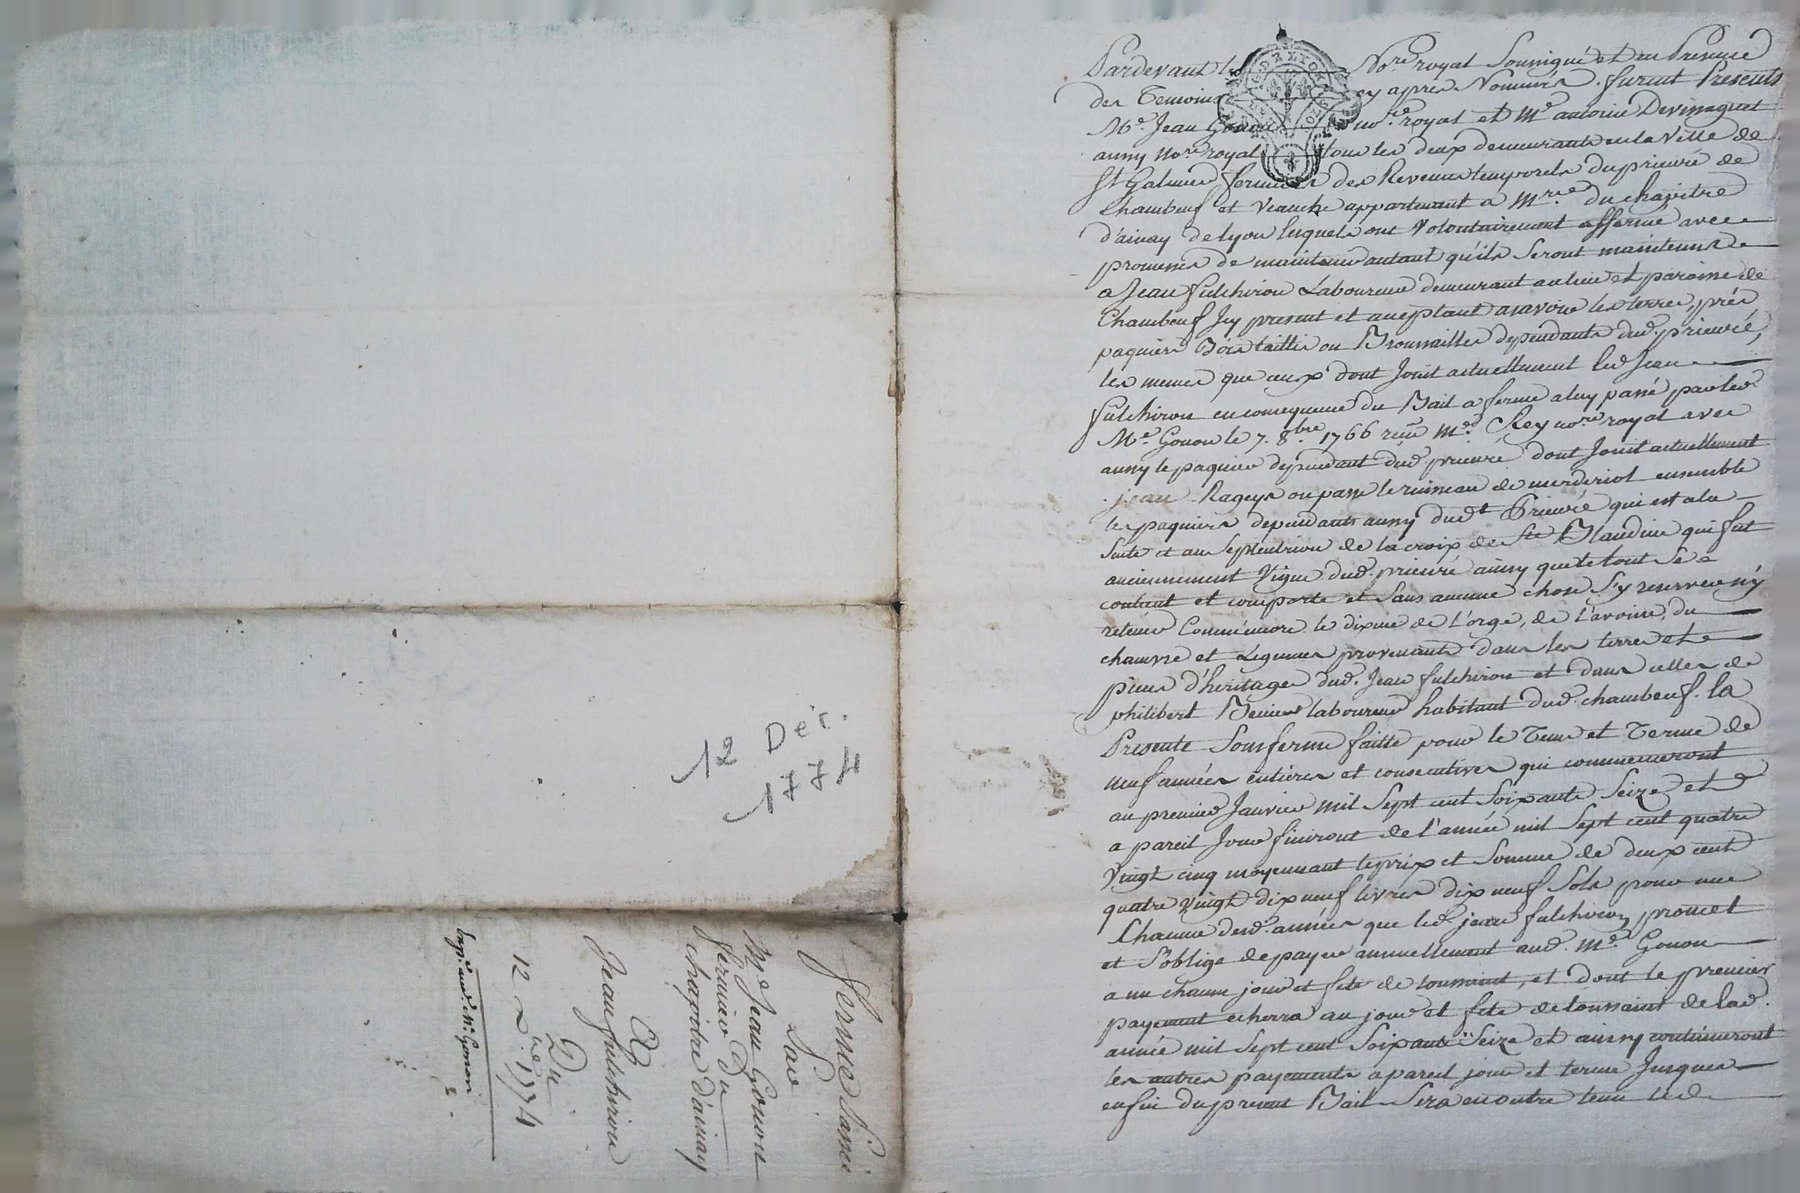 12 Déc.
1774
ferme passé
par
Me Jean Gonon
fermier du
chapitre d'ainay
A
Jean fulchiron
Du
12 Xbre 1774
Exp. aud. Me Gonon
Pardevant le Nore royal Soussigné et en Presence
des Temoins cy apres Nommés. furent Presents
Me. Jean Gonon nore. royal et Me antoine Devinaguet
aussy Nore royal tous les deux demeurants en la Ville de
St Galmier fermiers des Revenus temporels du prieuré de
Chambeuf et Veauche appartenant a Mrs du chapitre
d'ainay de lyon lesquels ont Volontairement affermé avec
promesse de maintenir autant qu'ils Seront maintenus
a Jean fulchiron Laboureur demeurant au lieu et paroisse de
Chambeuf Icy present et aceptant asavoir les terres, prés
paquiers Bois taillis ou Broussailles dependants dud. prieuré,
les memes que ceux dont Jouit actuellement led Jean
fulchiron en consequence du Bail a ferme a luy passé par led
Me. Gonon le 7. 8bre. 1766 reçu Me. Rey nore royal avec
aussy le paquier dependant dud prieuré dont Jouit actuellement
jean Rageys ou passe le ruisseau de merderiot ensemble
les paquiers dependants aussy dudt Prieuré qui est a la
Suite et au Septentrion de la croix de Ste Blandine qui fut
anciennement Vigne dud. prieuré ainsy que le tout Se
contient et comporte et Sans aucune chose S'y reserver ny
retenir Comme encore le dixme de l'orge, de l'avoine, du
chanvre et Legumes provenants dans les terres et
pieces d'heritage dud. Jean fulchiron et dans celles de
philibert laboureur habitant dud. chambeuf. la
Presente Sousferme faitte pour le Tems et Terme de
neuf années entieres et consecutives qui commenceront
au premier Janvier mil Sept cent Soixante Seize et
a pareil Jour finiront de l'année mil Sept cent quatre
Vingt cinq moyennant le prix et Somme de deux cent
quatre Vingt dix neuf livres dix neuf Sols pour une
Chacune desd. années que led. jean fulchiron promet
et S'oblige de payer annuellement aud. Me. Gonon
a un chacun jour et fete de toussaint, et dont le premier
payement echerra au jour et fete de toussaint de lad.
année mil Sept cent Soixante Seize et ainsy continueront
les autres payements a pareil jour et terme Jusques
enfin du present Bail Sera en outre tenu led